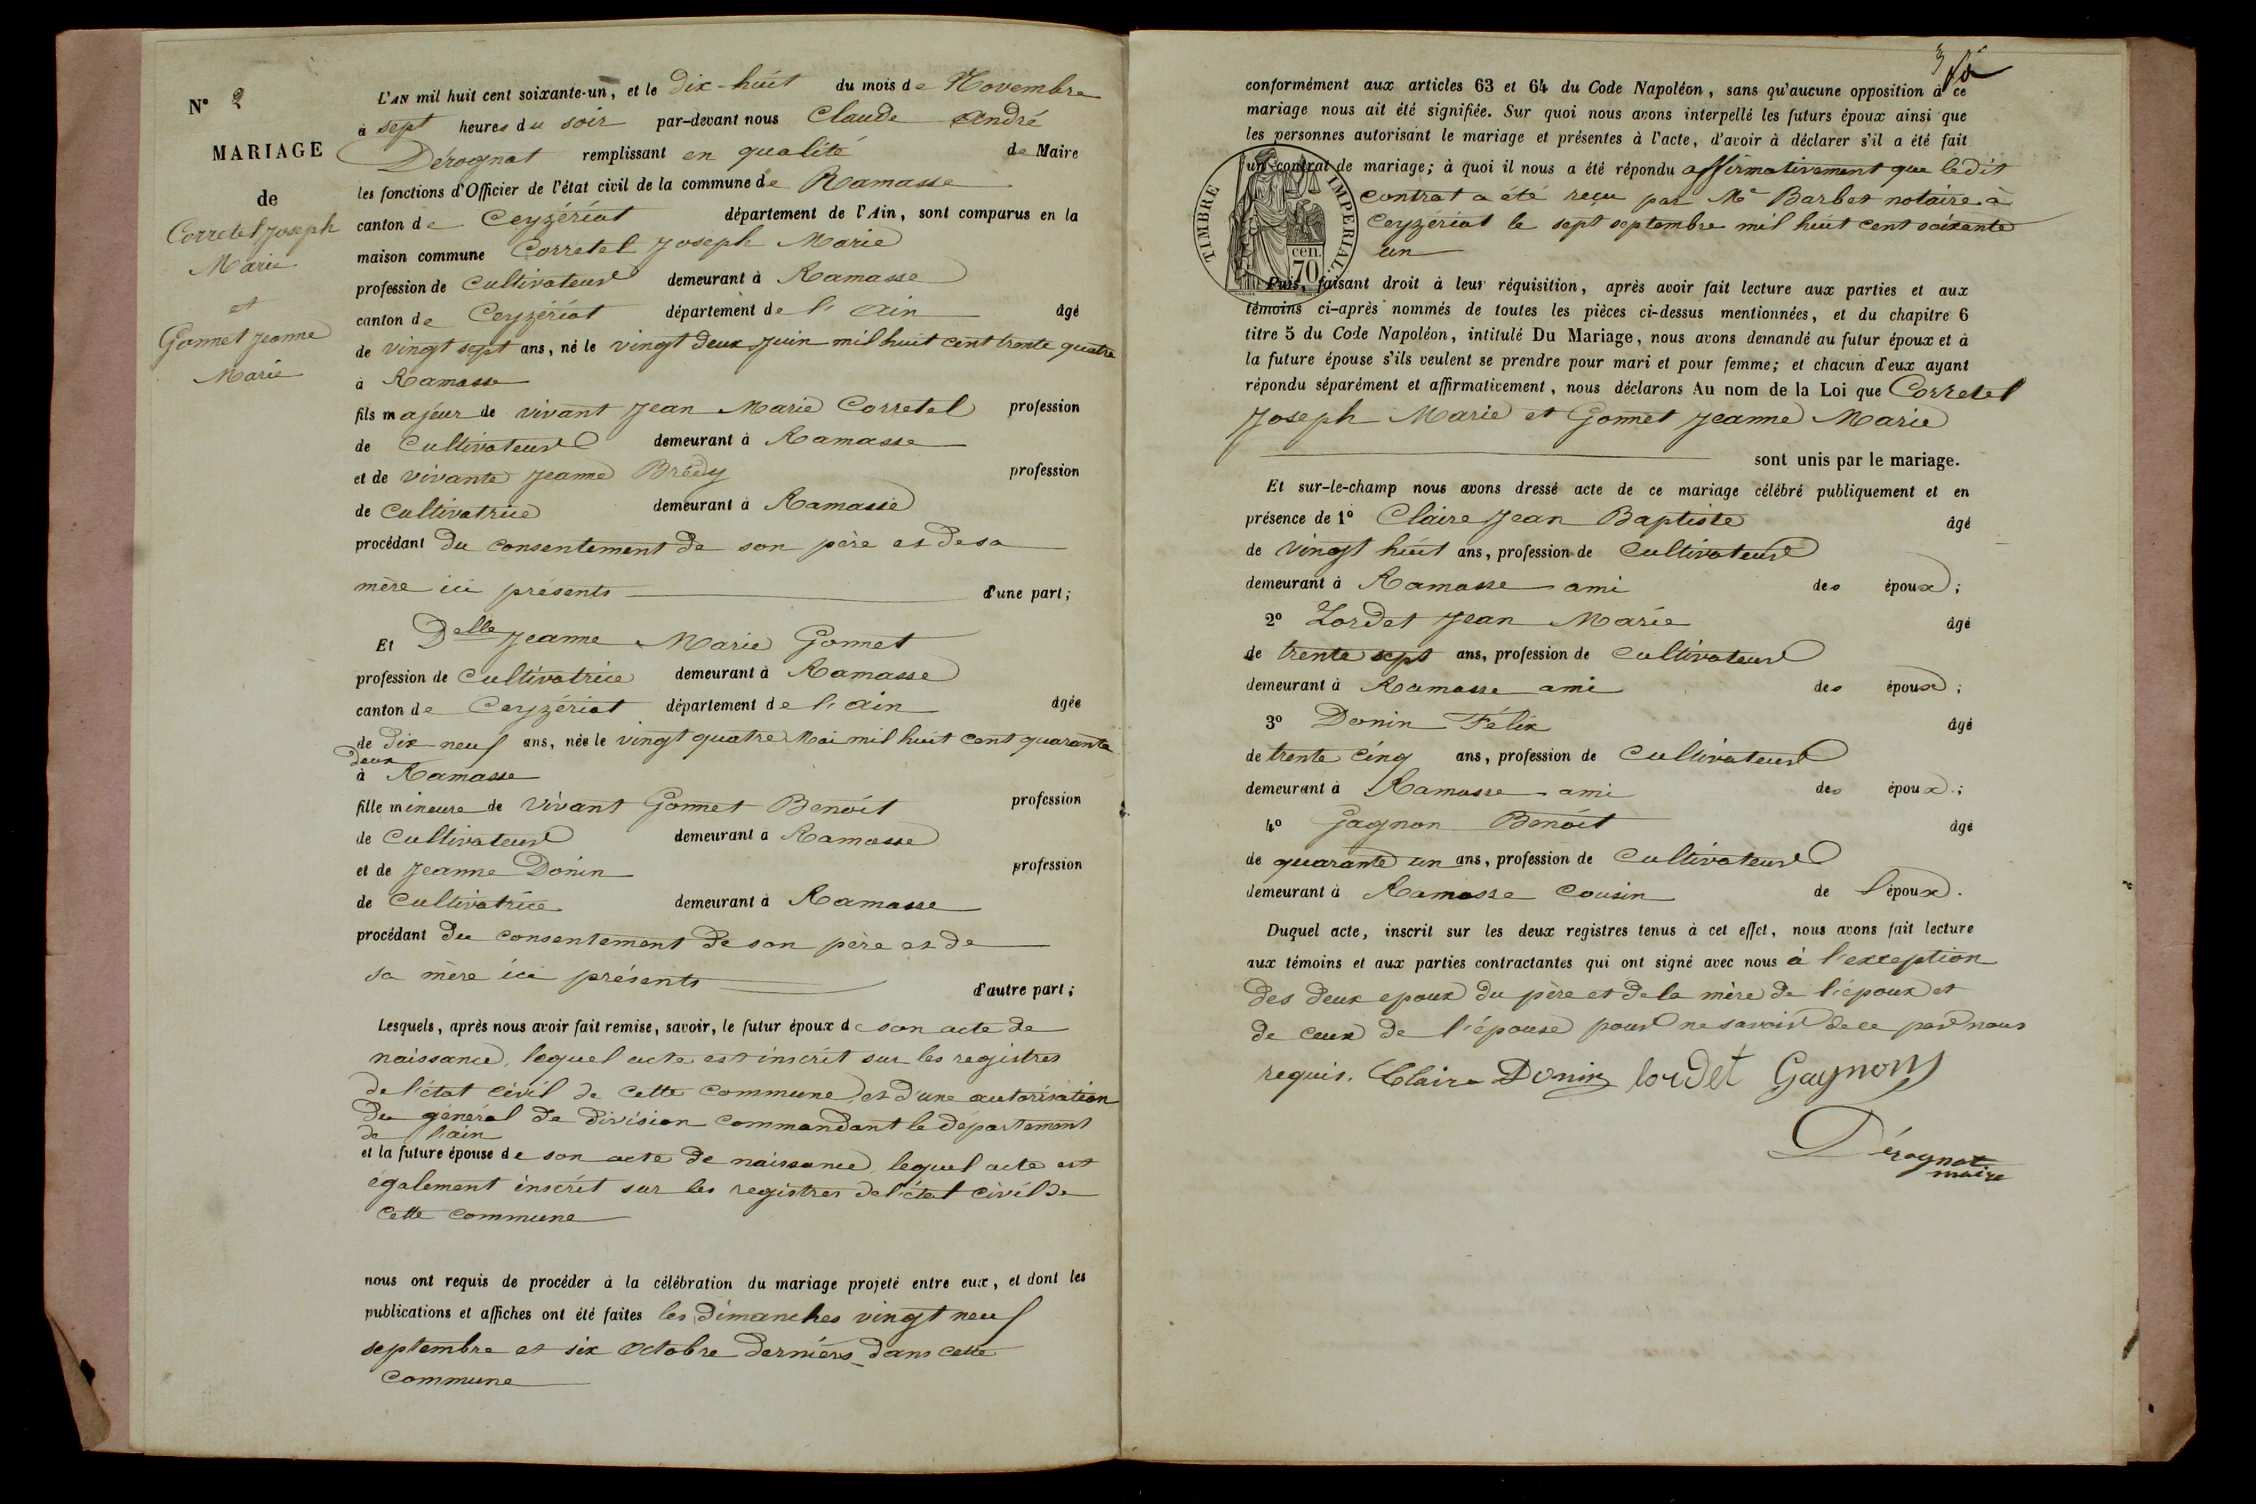 N° 2
MARIAGE
de
Corretel Joseph
Marie
et
Gonnet Jeanne
Marie
L'AN mil huit cent soixante-un, et le dix-huit du mois de Novembre
à sept heures du soir par-devant nous Claude André
Dérognat remplissant en qualité de Maire
les fonctions d'Officier de l'état civil de la commune de Ramasse
canton de Ceyzériat département de l'Ain, sont comparus en la
maison commune Corretel Joseph Marie
profession de Cultivateur demeurant à Ramasse
canton de Ceyzériat département de l'Ain âgé
de vingt sept ans, né le vingt deux Juin mil huit cent trente quatre
à Ramasse
fils majeur de vivant Jean Marie Corretel profession
de Cultivateur demeurant à Ramasse
et de vivante Jeanne Brédy profession
de Cultivatrice demeurant à Ramasse
procédant du consentement de son père et de sa
mère ici présents d'une part;
Et Delle Jeanne Marie Gonnet
profession de Cultivatrice demeurant à Ramasse
canton de Ceyzériat département de l'Ain âgée
de dix neuf ans, née le vingt quatre Mai mil huit cent quarante
deux
à Ramasse
fille mineure de vivant Gonnet Benoît profession
de Cultivateur demeurant à Ramasse
et de Jeanne Donin profession
de Cultivatrice demeurant à Ramasse
procédant du consentement de son père et de
sa mère ici présents d'autre part;
Lesquels, après nous avoir fait remise, savoir, le futur époux de son acte de
naissance, lequel acte est inscrit sur les registres
de l'état civil de cette commune, et d'une autorisation
du général de division commandant le département
de l'ain
et la future épouse de son acte de naissance, lequel acte est
également inscrit sur les registres de l'état civil de
cette commune
nous ont requis de procéder à la célébration du mariage projeté entre eux, et dont les
publications et affiches ont été faites les dimanches vingt neuf
septembre et six Octobre derniers dans cette
commune
3
conformément aux articles 63 et 64 du Code Napoléon, sans qu'aucune opposition à ce
mariage nous ait été signifiée. Sur quoi nous avons interpellé les futurs époux ainsi que
les personnes autorisant le mariage et présentes à l'acte, d'avoir à déclarer s'il a été fait
un contrat de mariage; à quoi il nous a été répondu affirmativement que ledit
contrat a été reçu par Me Barbet notaire à
Ceyzériat le sept septembre mil huit cent soixante
un
TIMBRE IMPERIAL.
70 cen.
Puis, faisant droit à leur réquisition, après avoir fait lecture aux parties et aux
témoins ci-après nommés de toutes les pièces ci-dessus mentionnées, et du chapitre 6
titre 5 du Code Napoléon, intitulé Du Mariage, nous avons demandé au futur époux et à
la future épouse s'ils veulent se prendre pour mari et pour femme; et chacun d'eux ayant
répondu séparément et affirmativement, nous déclarons Au nom de la Loi que Corretel
Joseph Marie et Gonnet Jeanne Marie
sont unis par le mariage.
Et sur-le-champ nous avons dressé acte de ce mariage célébré publiquement et en
présence de 1° Claire Jean Baptiste âgé
de vingt huit ans, profession de Cultivateur
demeurant à Ramasse ami des époux;
2° Lordet Jean Marie âgé
de trente sept ans, profession de Cultivateur
demeurant à Ramasse ami des époux;
3° Donin Félix âgé
de trente cinq ans, profession de Cultivateur
demeurant à Ramasse ami des époux;
4° Gagnon Benoît âgé
de quarante un ans, profession de Cultivateur
demeurant à Ramasse cousin de l'époux.
Duquel acte, inscrit sur les deux registres tenus à cet effet, nous avons fait lecture
aux témoins et aux parties contractantes qui ont signé avec nous à l'exception
des deux epoux du père et de la mère de l'époux et
de ceux de l'épouse pour ne savoir de ce par nous
requis. Claire Donin lordet Gagnon
Dérognat
maire